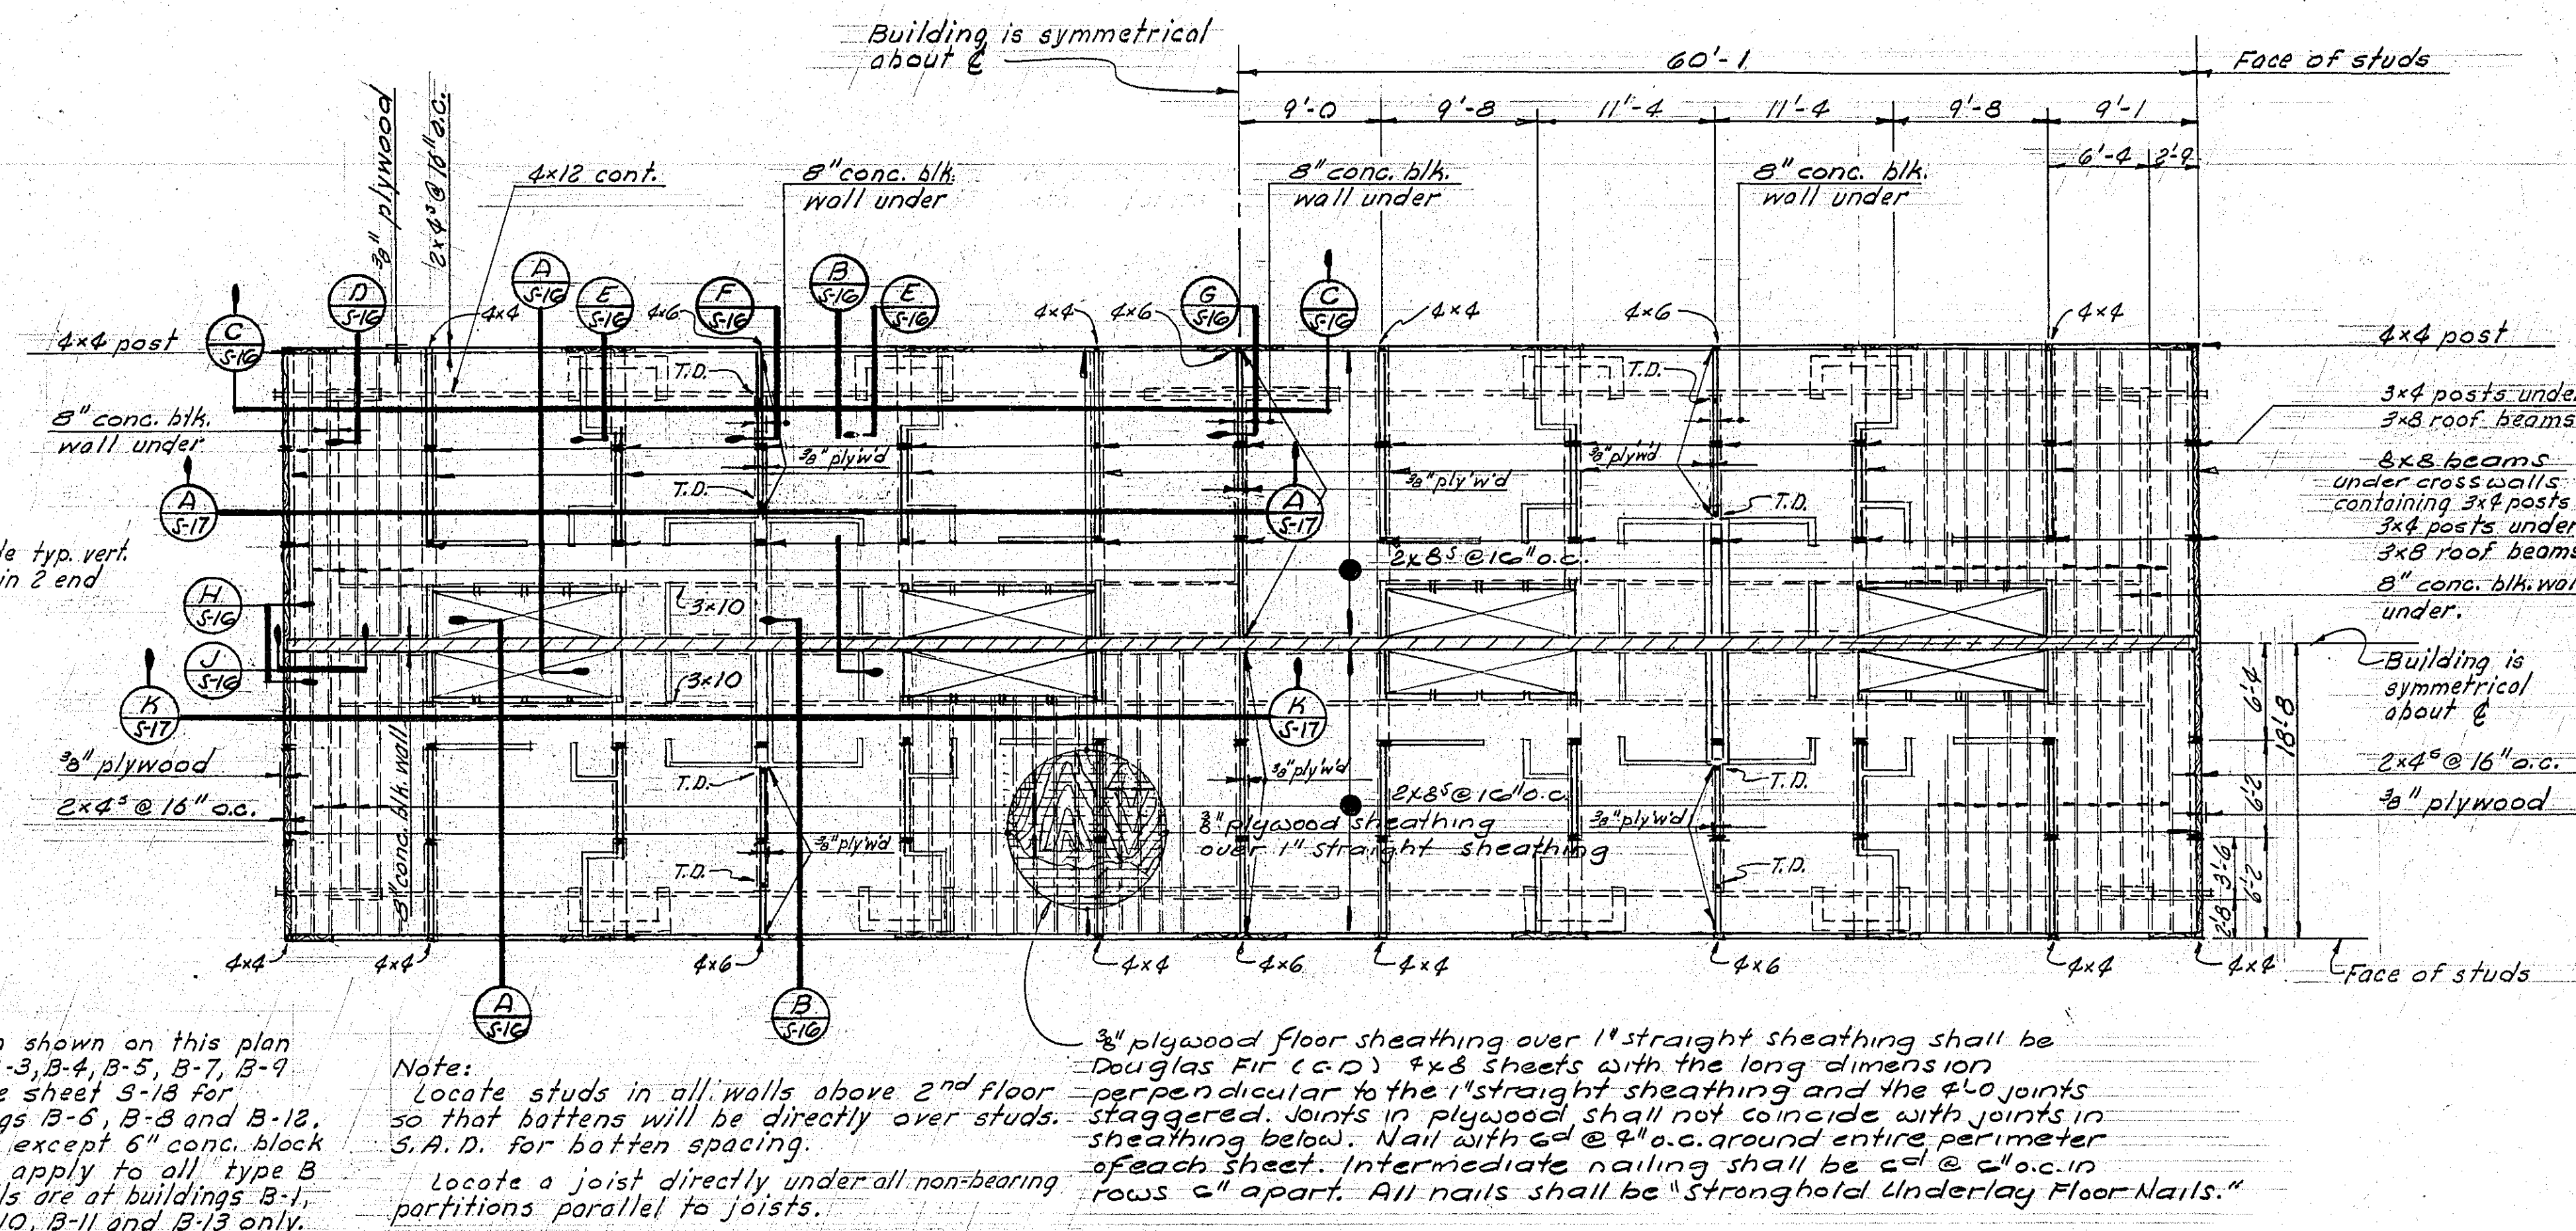 Building is symmetrical
about ℄
60'-1
Face of studs
9'-0
9'-8
11'-4
11'-4
9'-8
9'-1
6'-4
2'-9
3/8" plywood
2x4s @ 16" o.c.
4x12 cont.
8" conc. blk.
wall under
8" conc. blk.
wall under
8" conc. blk.
wall under
C
S-16
D
S-16
A
S-16
E
S-16
F
S-16
B
S-16
E
S-16
G
S-16
C
S-16
4x4 post
4x4
4x6
4x4
4x6
4x4
4x6
4x4
4x4 post
8" conc. blk.
wall under
T.D.
T.D.
3x4 posts unde
3x8 roof beams
3/8" plyw'd
3/8" plyw'd
3/8" plyw'd
8x8 beams
under crosswalls
containing 3x4 posts
3x4 posts under
3x8 roof beams
8" conc. blk. wal
under.
T.D.
T.D.
A
S-17
A
S-17
le typ. vert.
in 2 end
2x8s @ 16" o.c.
H
S-16
3x10
J
S-16
3x10
K
S-17
K
S-17
Building is
symmetrical
about ℄
6'-4
18'-8
6'-2
6'-2
3'-6
2'-8
8" conc. blk. wall
3/8" plywood
2x4s @ 16" o.c.
T.D.
3/8" plyw'd
T.D.
2x4s @ 16" o.c.
3/8" plywood
2x8s @ 16" o.c.
3/8" plywood sheathing
over 1" straight sheathing
3/8" plyw'd
3/8" plyw'd
T.D.
T.D.
4x4
4x4
4x6
4x4
4x6
4x4
4x6
4x4
4x4
Face of studs
A
S-16
B
S-16
n shown on this plan
-3, B-4, B-5, B-7, B-9
e sheet S-18 for
gs B-6, B-8 and B-12.
except 6" conc. block
apply to all type B
ls are at buildings B-1,
10, B-11 and B-13 only.
Note:
Locate studs in all walls above 2nd floor
so that battens will be directly over studs.
S.A.D. for batten spacing.
Locate a joist directly under all non-bearing
partitions parallel to joists.
3/8" plywood floor sheathing over 1" straight sheathing shall be
Douglas Fir (C-D) 4x8 sheets with the long dimension
perpendicular to the 1" straight sheathing and the 4'-0 joints
staggered. Joints in plywood shall not coincide with joints in
sheathing below. Nail with 6d @ 4" o.c. around entire perimeter
of each sheet. Intermediate nailing shall be 6d @ 6" o.c. in
rows 6" apart. All nails shall be "Stronghold Underlay Floor Nails."